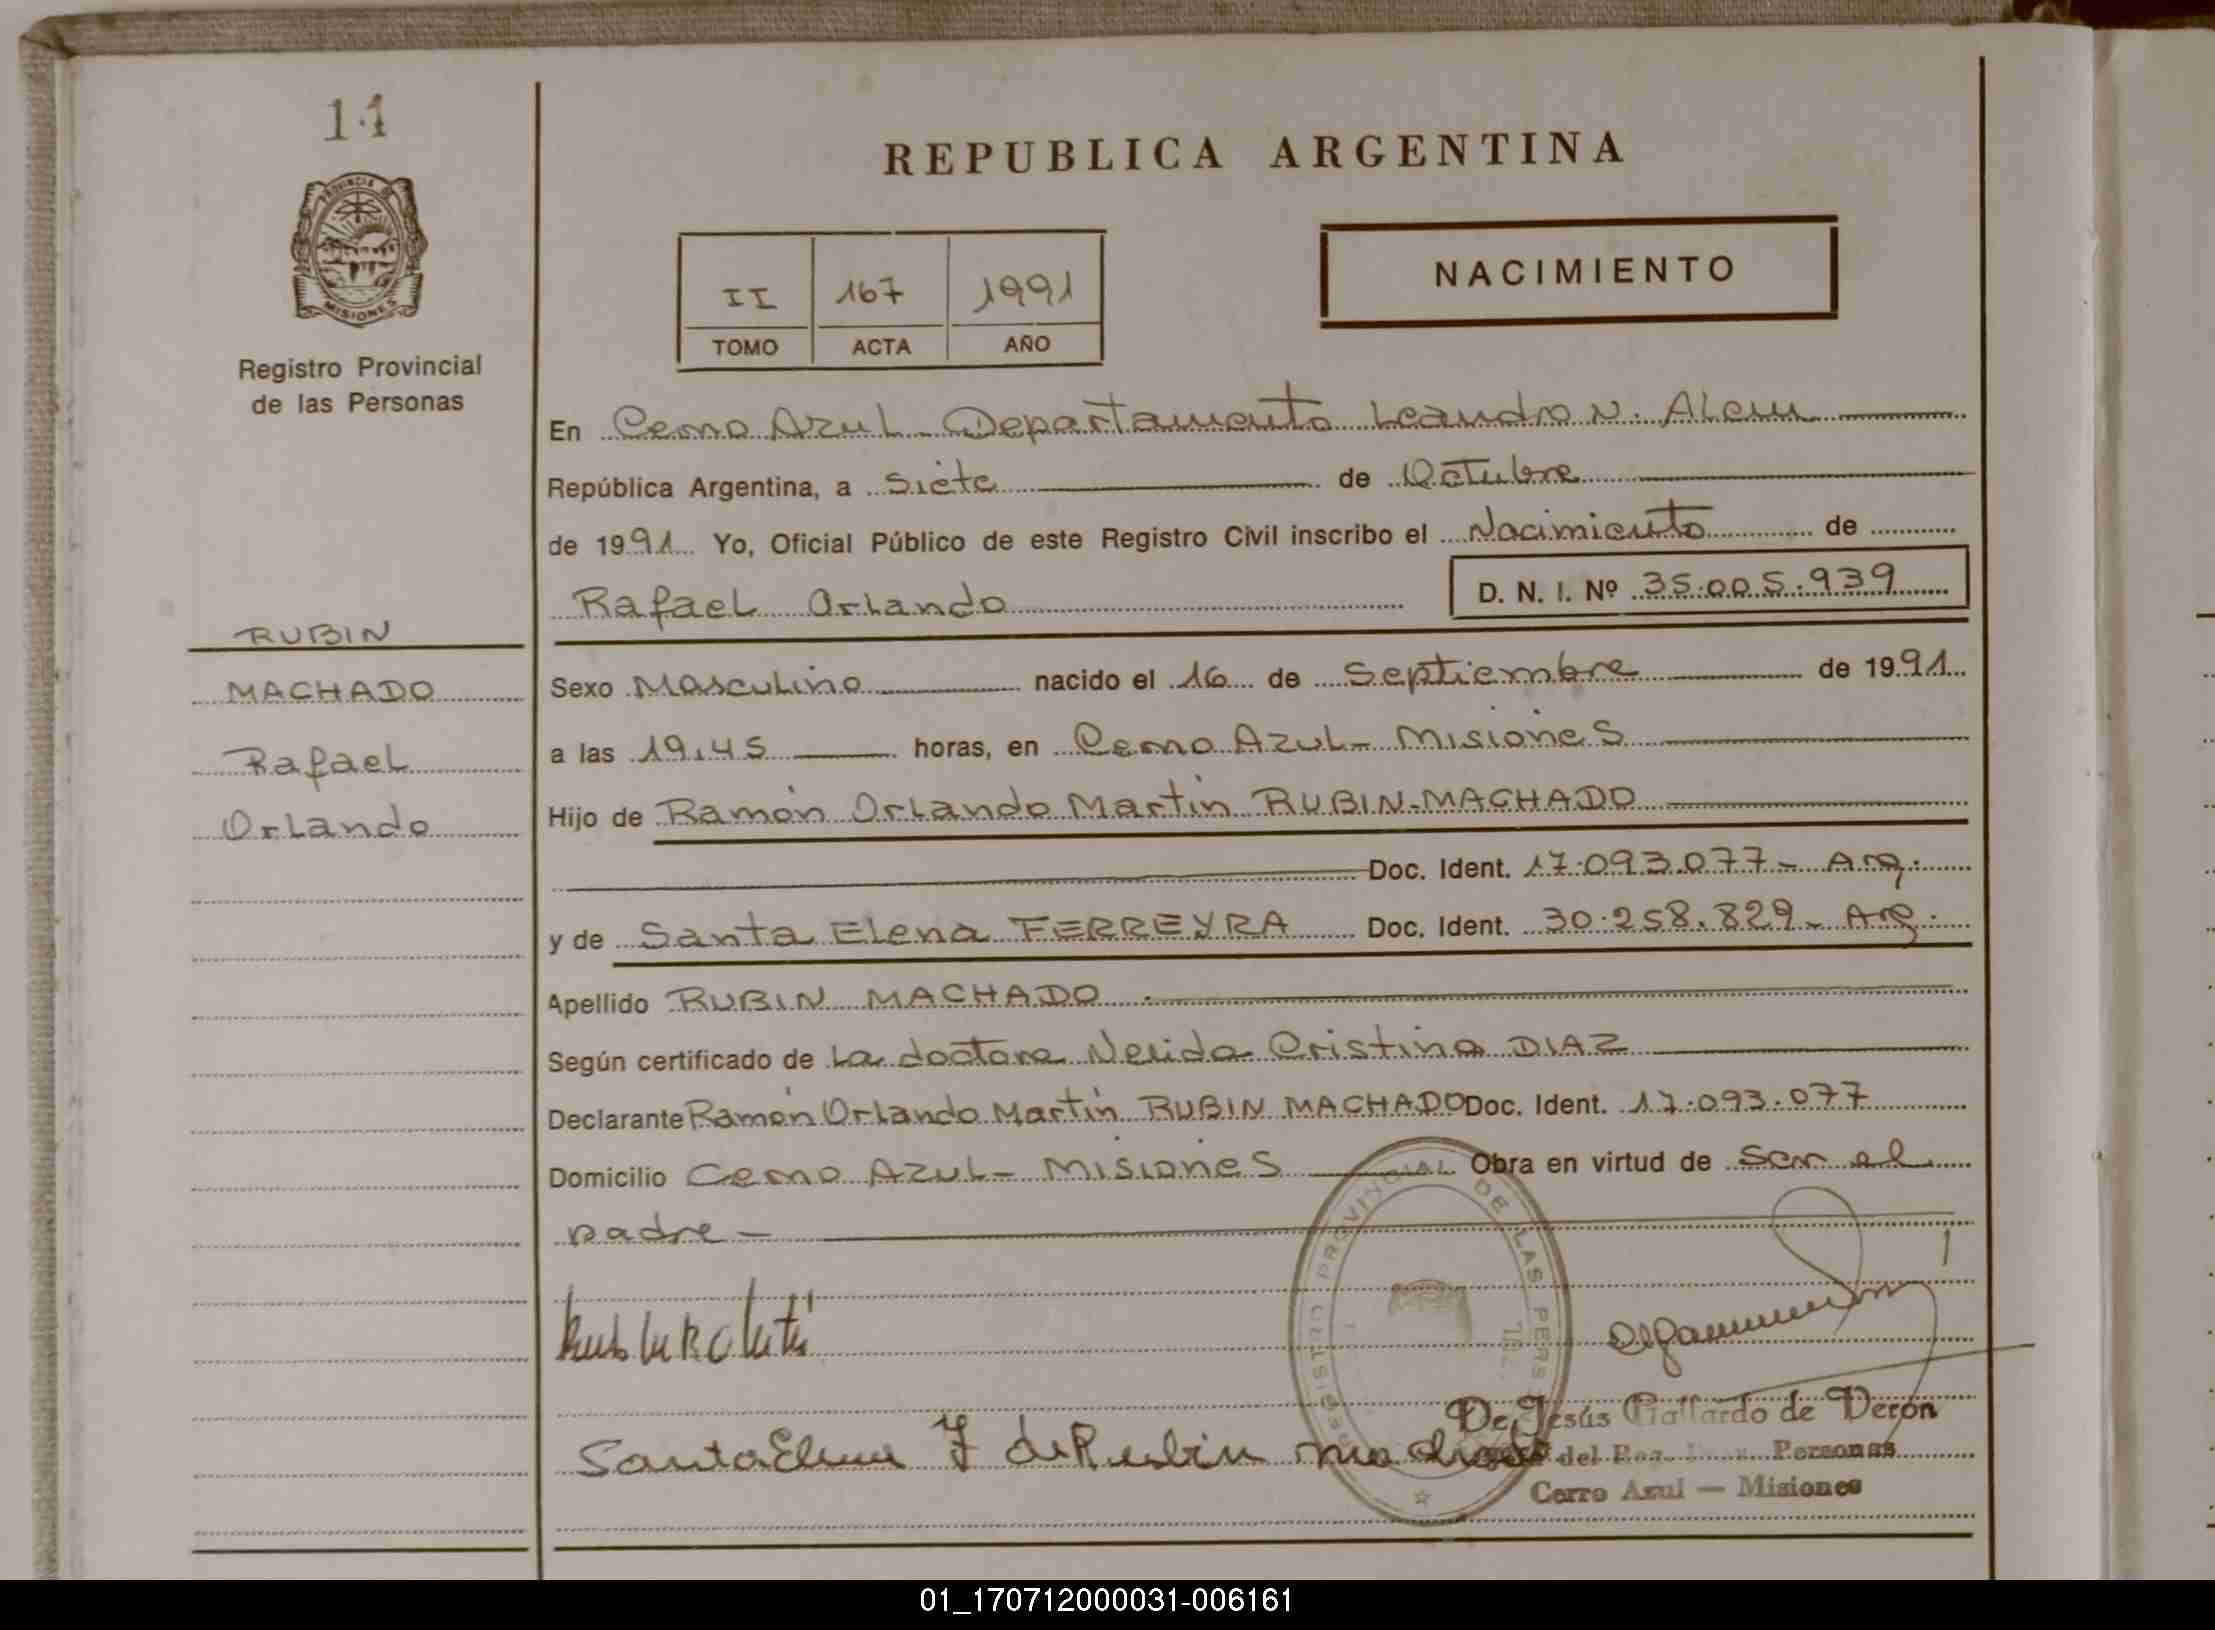 14
PROVINCIA DE
MISIONES
Registro Provincial
de las Personas
RUBIN
MACHADO
Rafael
Orlando
REPUBLICA ARGENTINA
II 167 1991
TOMO ACTA AÑO
NACIMIENTO
En Cerro Azul - Departamento Leandro N. Alem
República Argentina, a siete de Octubre
de 1991 Yo, Oficial Público de este Registro Civil inscribo el Nacimiento de
Rafael Orlando D. N. I. Nº 35.005.939
Sexo Masculino nacido el 16 de Septiembre de 1991
a las 19,45 horas, en Cerro Azul - Misiones
Hijo de Ramón Orlando Martín RUBIN-MACHADO
Doc. Ident. 17.093.077 - Arg.
y de Santa Elena FERREYRA Doc. Ident. 30.258.829 - Arg.
Apellido RUBIN MACHADO
Según certificado de La doctora Nelida Cristina DIAZ
Declarante Ramón Orlando Martín RUBIN MACHADO Doc. Ident. 17.093.077
Domicilio Cerro Azul - Misiones Obra en virtud de ser el
padre -
REGISTRO PROVINCIAL DE LAS PERS
De Jesús Gallardo de Verón
Santa Elena F de Rubin machado
del Reg. Personas
Cerro Azul — Misiones
01_170712000031-006161